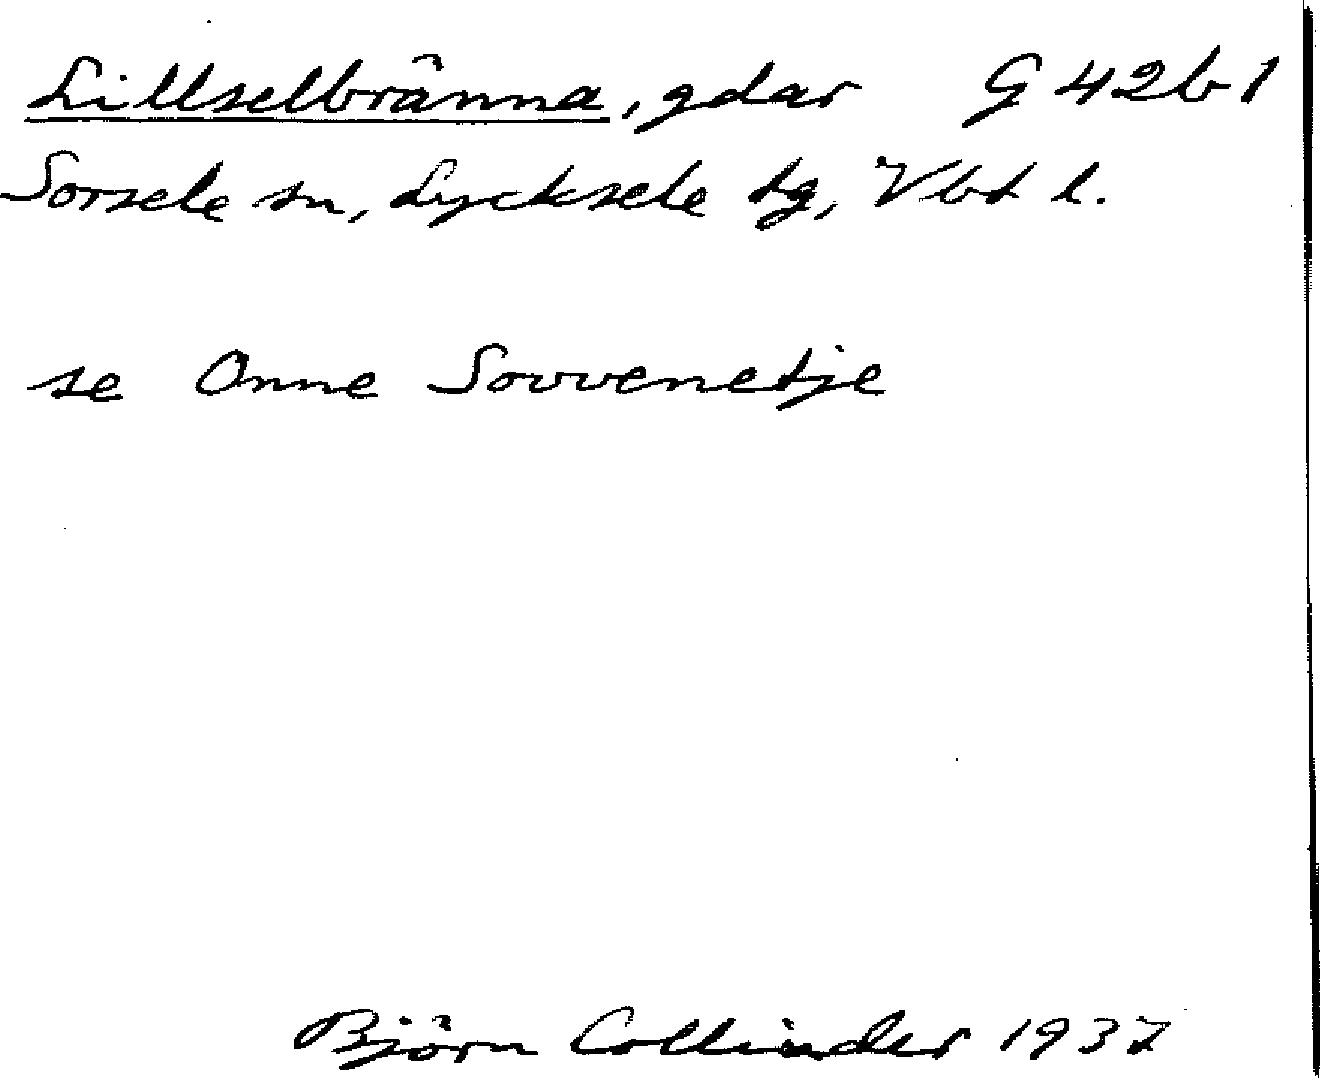 Lillselbränna, gdar G 42b1
Sorsele sn, Lycksele tg, Vbt l.
se Onne Sovvenetje
Björn Collinder 1937